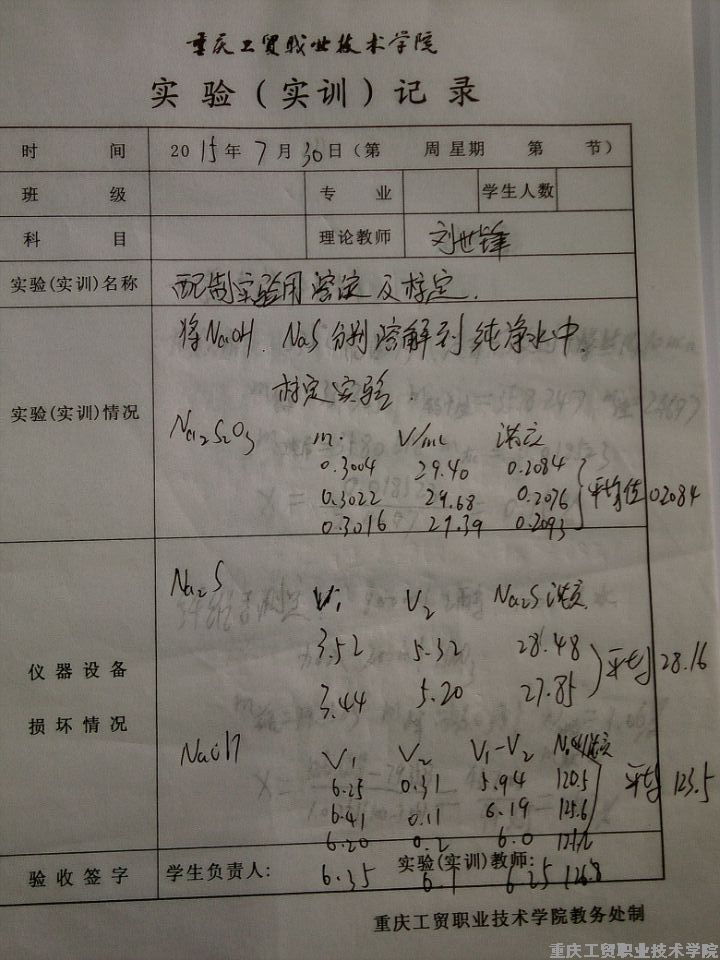 重庆工贸职业技术学院
实验(实训)记录
时 间 2015年7月30日(第 周星期 第 节)
班 级 专 业 学生人数
科 目 理论教师 刘世锋
实验(实训)名称 配制实验用溶液及标定.
实验(实训)情况
将NaOH、NaS分别溶解到纯净水中.
标定实验.
Na2S2O3 m. V/mL 浓度
0.3004 29.40 0.2084
0.3022 29.68 0.2076
0.3016 29.39 0.2093
平均值 0.2084
仪器设备
损坏情况
Na2S V1 V2 Na2S浓度
3.52 5.32 28.48
3.44 5.20 27.85
平均 28.16
NaOH V1 V2 V1-V2 NaOH浓度
6.25 0.31 5.94 120.5
6.41 0.11 6.19 125.6
6.20 0.2 6.0
平均 123.5
验收签字 学生负责人: 实验(实训)教师:
6.35 6.25 126.8
重庆工贸职业技术学院教务处制
重庆工贸职业技术学院